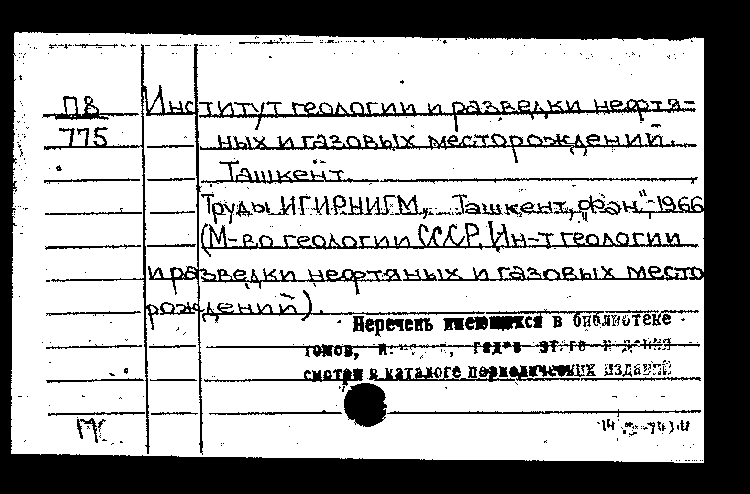 П8 Институт геологии и разведки нефтя-
775 ных и газовых месторождений.
Ташкент.
Труды ИГИРНИГМ, Ташкент, „Фан", 1966
(М-во геологии СССР. Ин-т геологии
и разведки нефтяных и газовых место
рождений).
Перечень имеющихся в библиотеке
томов,
смотри в каталоге периодических изданий